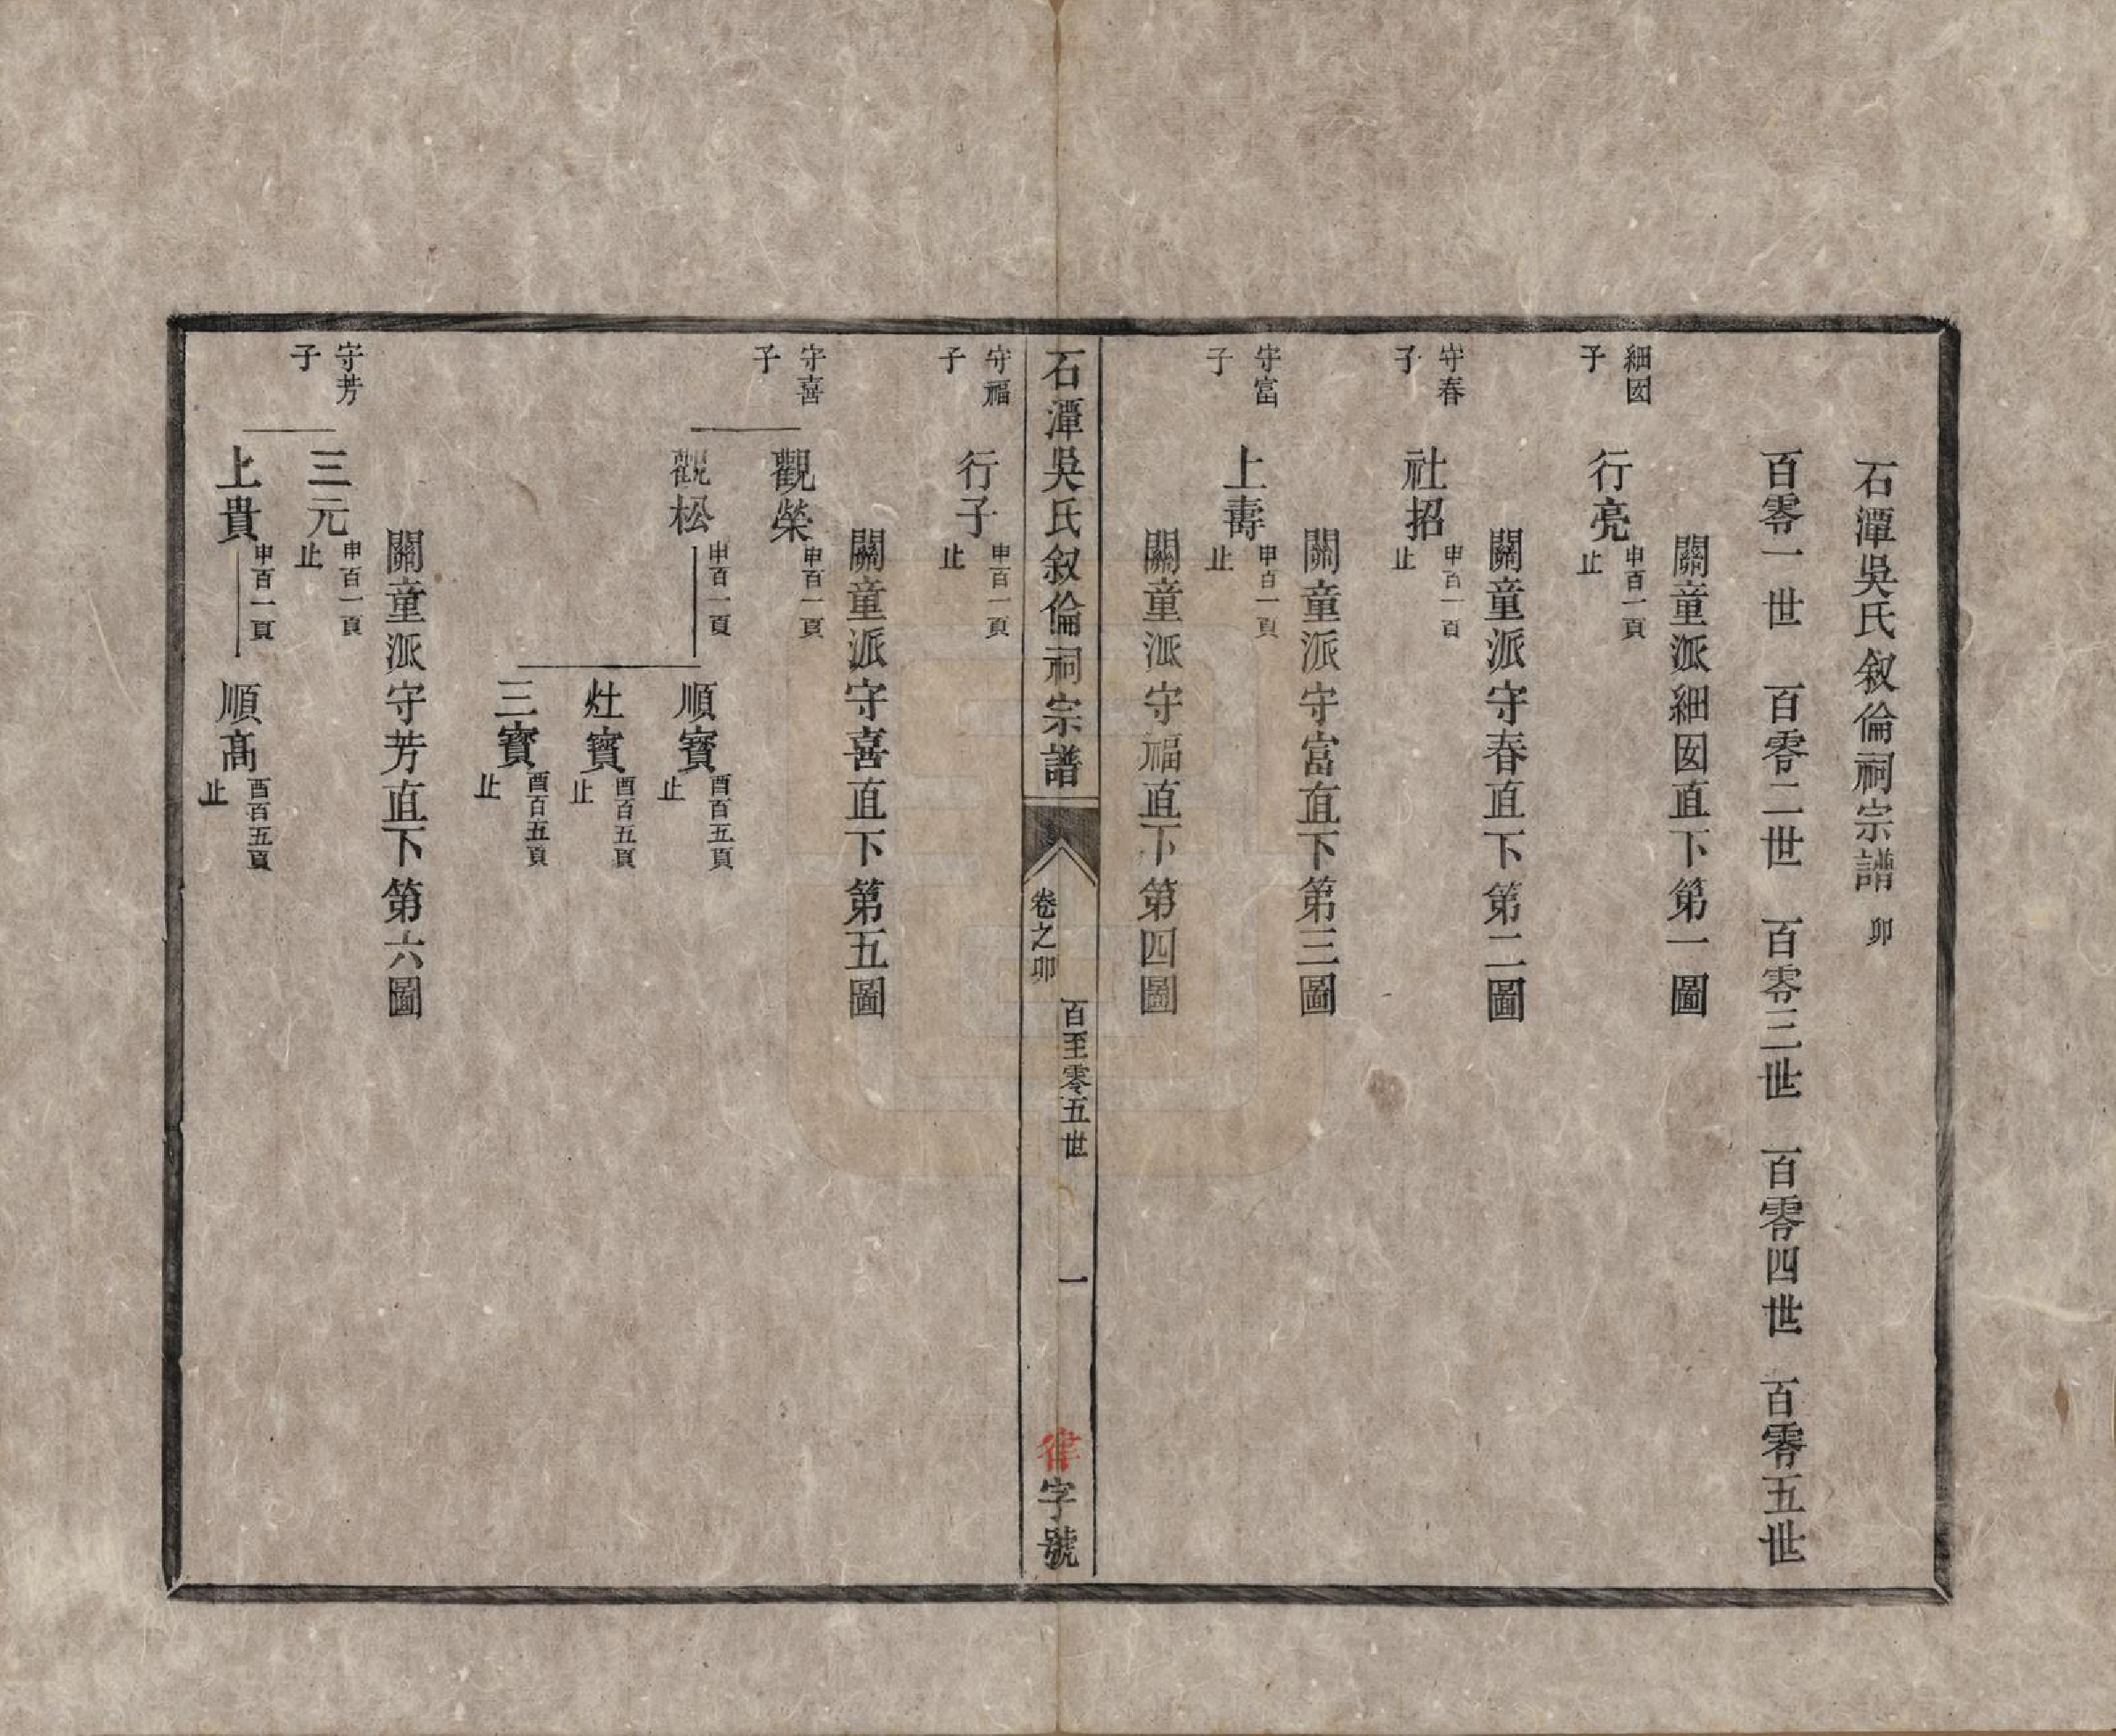 石潭吳氏叙倫祠宗譜 卯
百零一世 百零二世 百零三世 百零四世 百零五世
關童派細囡直下第一圖
細囡子
行亮 申百一頁 止
關童派守春直下第二圖
守春子
社招 申百一百 止
關童派守富直下第三圖
守富子
上壽 申百一頁 止
關童派守福直下第四圖
石潭吳氏叙倫祠宗譜 卷之卯 百至零五世 一 律字號
守福子
行子 申百一頁 止
關童派守喜直下第五圖
守喜子
觀榮 申百一頁
觀松 申百一頁
順寳 酉百五頁 止
灶寳 酉百五頁 止
三寳 酉百五頁 止
關童派守芳直下第六圖
守芳子
三元 申百一頁 止
上貴 申百一頁
順髙 酉百五頁 止